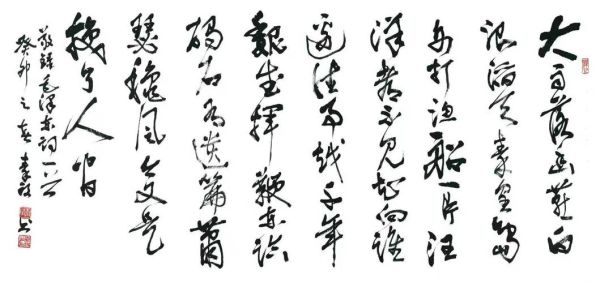 大雨落幽燕白
浪滔天秦皇島
外打渔船一片汪
洋都不见知向谁
邊往事越千年
魏武挥鞭东临
碣石有遗篇萧
瑟秋风今又是
换了人间
敬録毛泽东词一首
癸卯之春